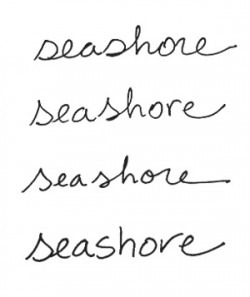 seashore
seashore
seashore
seashore